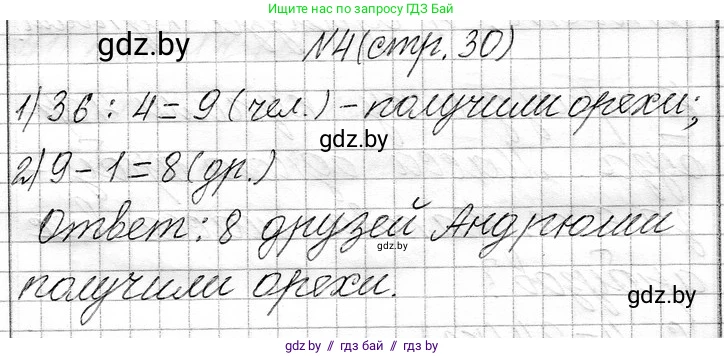 Ищите нас по запросу ГДЗ Бай
gdz.by
№4(стр. 30)
1) 36 : 4 = 9 (чел.) - получили орехи;
gdz.by
2) 9 - 1 = 8 (др.)
Ответ: 8 друзей Андрюши
gdz.by
получили орехи.
gdz.by
gdz.by // гдз бай // гдз by